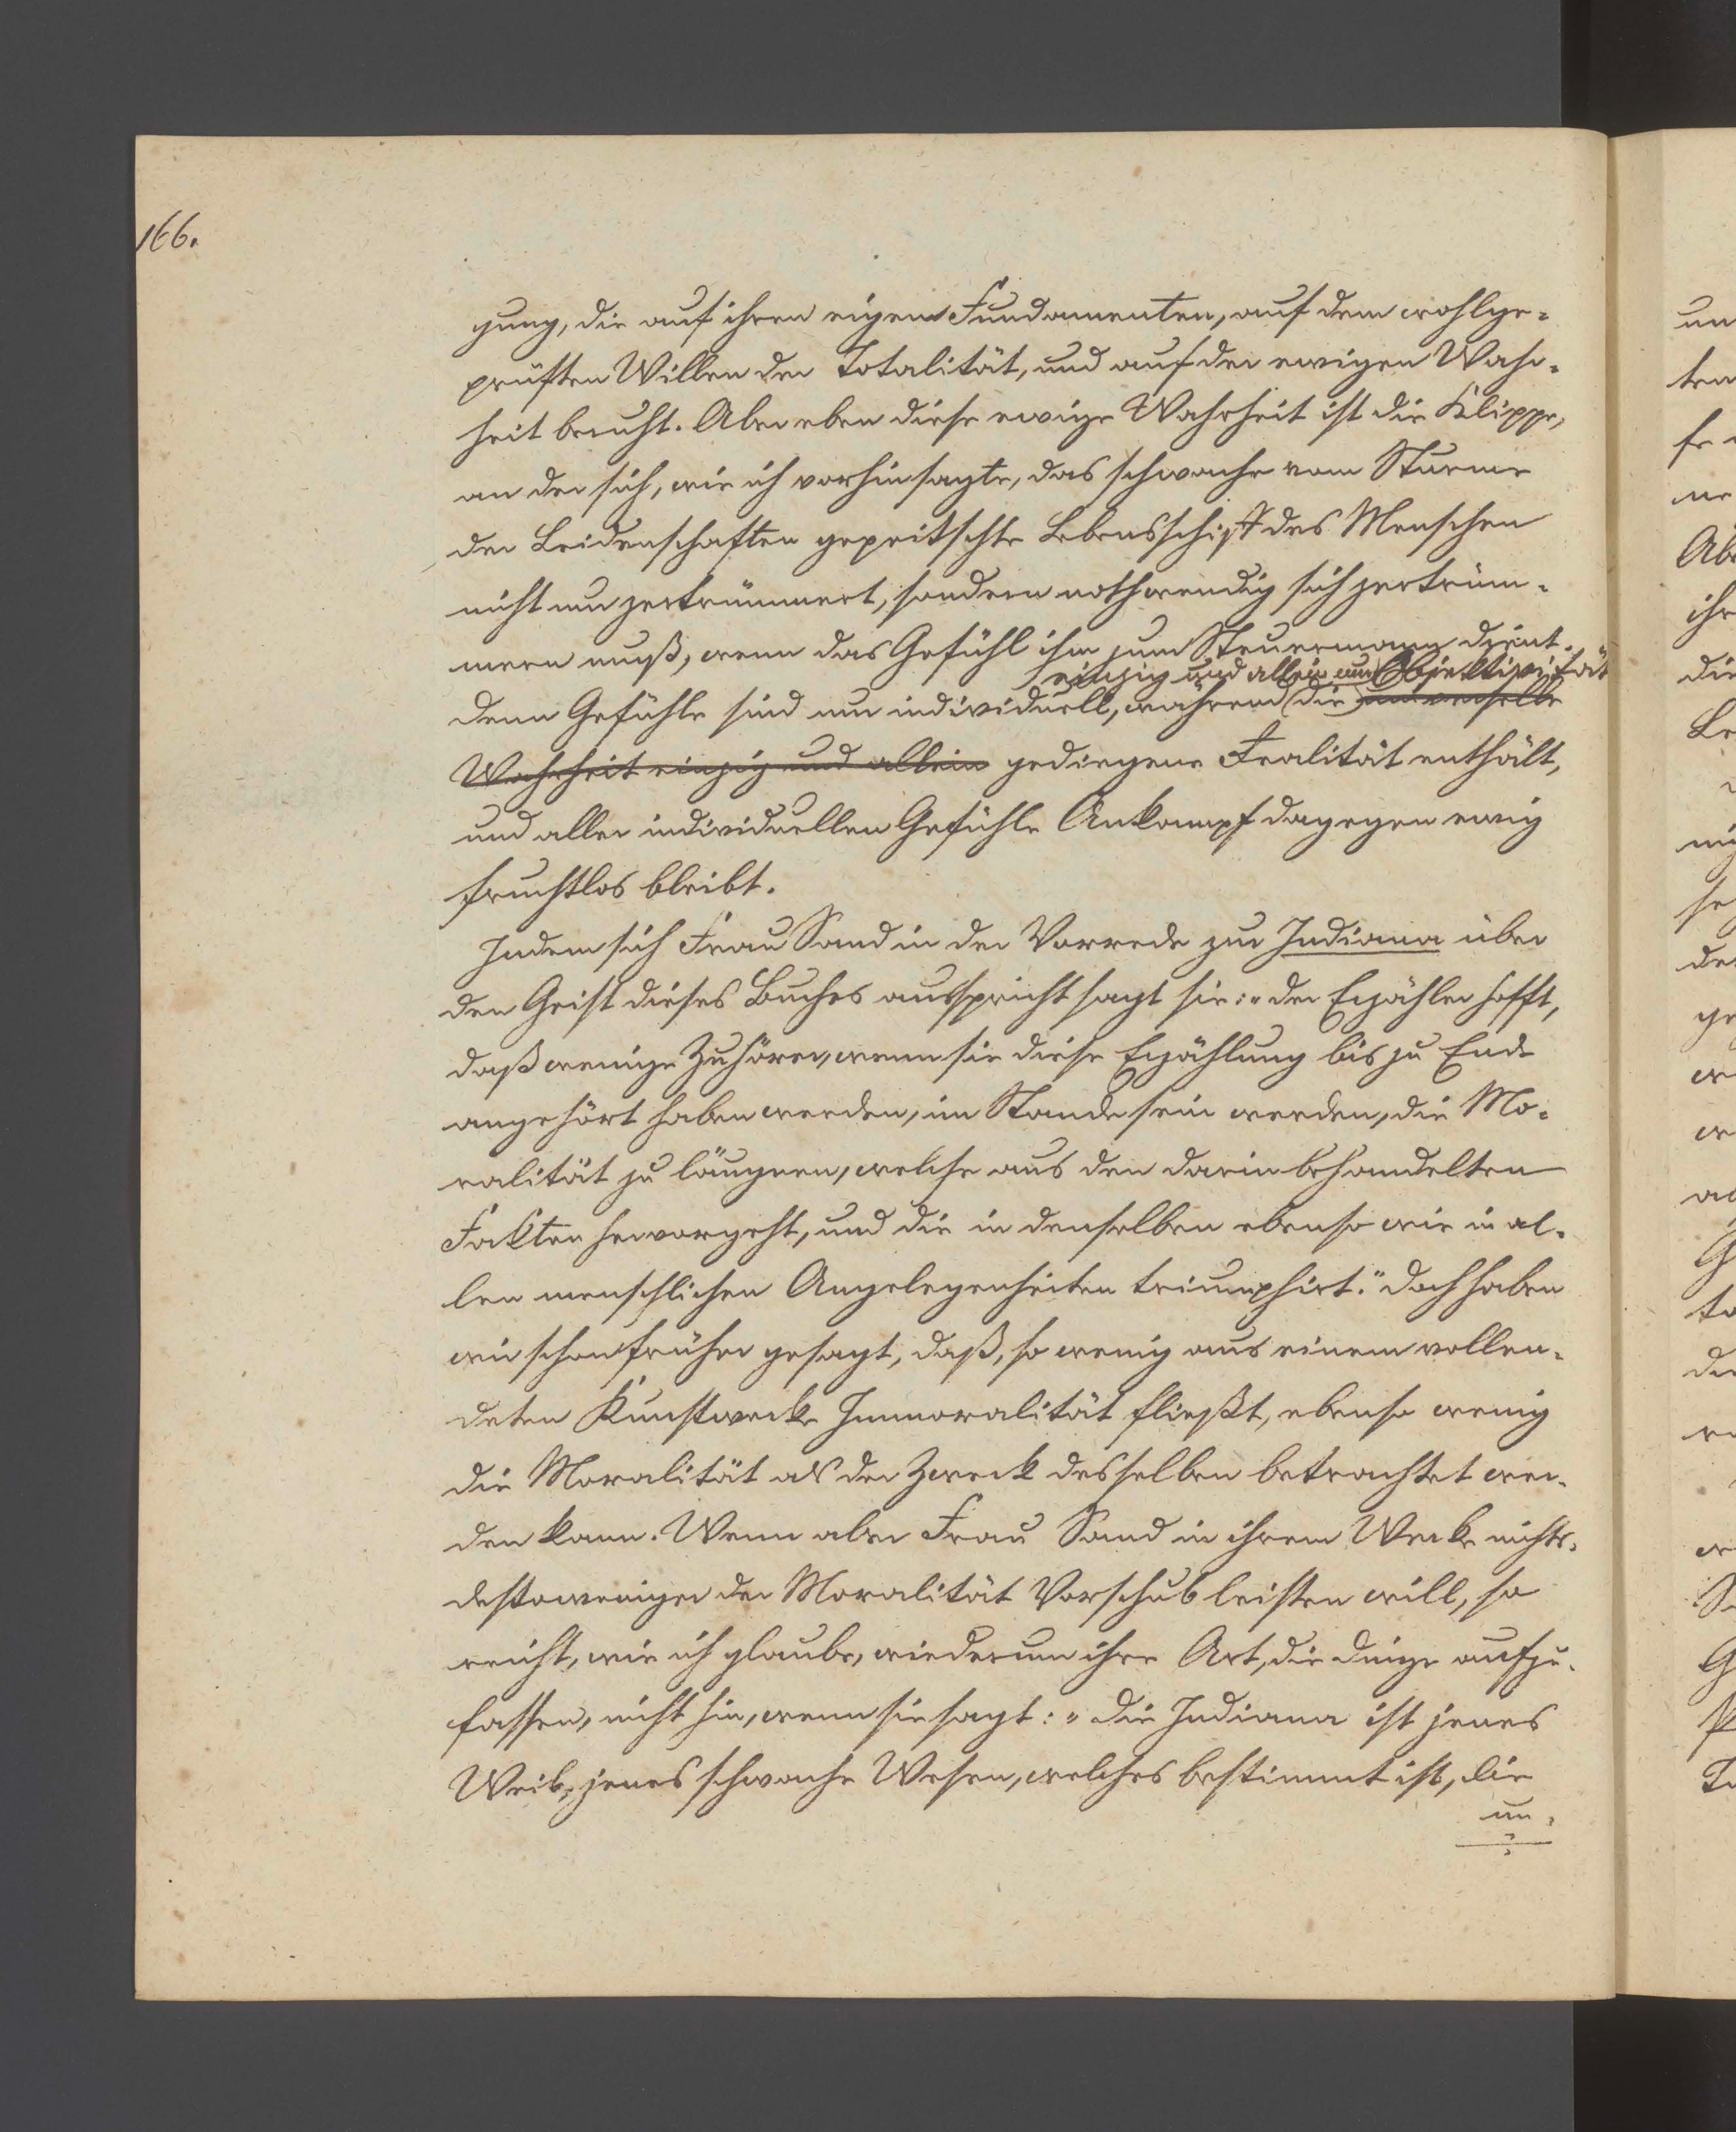 166.
gung, die auf ihren eigenen Fundamenten, auf dem wohlge-
prüften Willen der Totalität, und auf der ewigen Wahr-
heit beruht. Aber eben diese ewige Wahrheit ist die Klippe,
an der sich, wie ich vorhin sagte, das schwache vom Sturme
der Leidenschaften gepeitschte Lebensschiff des Menschen
nicht nur zertrümmert, sondern nothwendig sich zertrüm-
mern muß, wenn das Gefühl ihm zum Steuermann dient.
einzig und allein nur Objektivität
Denn Gefühle sind nur individuell, während die universelle
Wahrheit einzig und allein gediegene Realität enthält,
und aller individuellen Gefühle Ankampf dagegen ewig
fruchtlos bleibt.
Indem sich Frau Sand in der Vorrede zur Indiana über
den Geist dieses Buches ausspricht sagt sie: „der Erzähler hofft,
daß wenige Zuhörer, wenn sie diese Erzählung bis zu Ende
angehört haben werden, im Stande sein werden, die Mo-
ralität zu läugnen, welche aus den darin behandelten
Fakten hervorgeht, und die in denselben ebenso wie in al-
len menschlichen Angelegenheiten triumphirt." Doch haben
wir schon früher gesagt, daß, so wenig aus einem vollen-
deten Kunstwerke Immoralität fließt, ebenso wenig
die Moralität als der Zweck desselben betrachtet wer-
den kann. Wenn aber Frau Sand in ihrem Werke nichts-
destoweniger der Moralität Vorschub leisten will, so
reicht, wie ich glaube, wiederum ihre Art, die Dinge aufzu-
fassen, nicht hin, wenn sie sagt: „die Indiana ist jenes
Weib, jenes schwache Wesen, welches bestimmt ist, die
un-